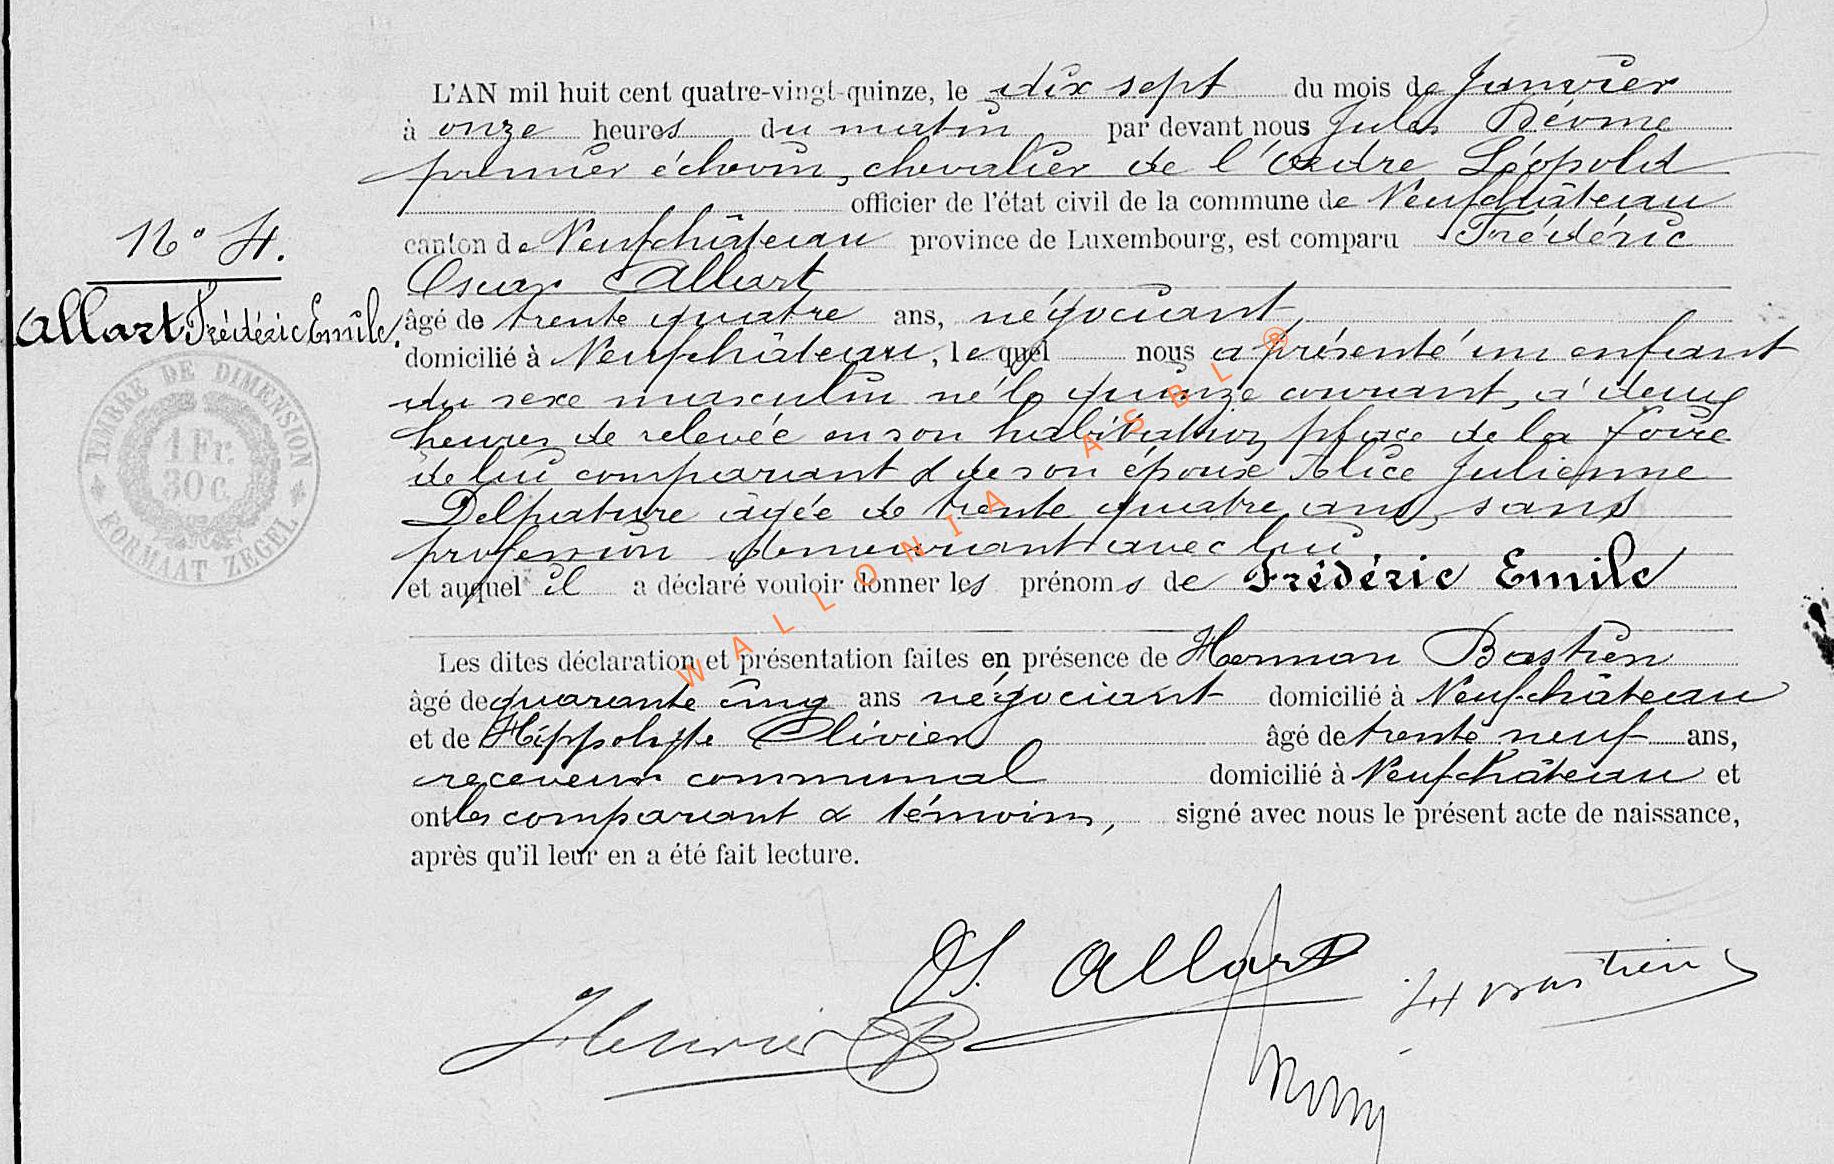 L'AN mil huit cent quatre-vingt-quinze, le dix sept du mois de Janvier
à onze heures du matin par devant nous Jules
premier échevin, chevalier de l'Ordre Léopold
officier de l'état civil de la commune de Neufchâteau
N° 4.
canton de Neufchâteau province de Luxembourg, est comparu Frédéric
Oscar Allart
Allart Frédéric Emile.
âgé de trente quatre ans, négociant,
domicilié à Neufchâteau, lequel nous a présenté un enfant
du sexe masculin né le quinze courant, à deux
heures de relevée en son habitation place de la foire
de lui comparant & de son épouse Alice Julienne
Delpature âgée de trente quatre ans, sans
profession demeurant avec lui
et auquel il a déclaré vouloir donner les prénoms de Frédéric Emile
TIMBRE DE DIMENSION
1 Fr.
30 c.
FORMAAT ZEGEL
Les dites déclaration et présentation faites en présence de Herman Bastien
âgé de quarante cinq ans négociant domicilié à Neufchâteau
et de Hippolyte Olivier âgé de trente neuf ans,
receveur communal domicilié à Neufchâteau et
ont les comparant & témoins, signé avec nous le présent acte de naissance,
après qu'il leur en a été fait lecture.
WALLONIA ASBL ®
Os. Allart
H Bastien